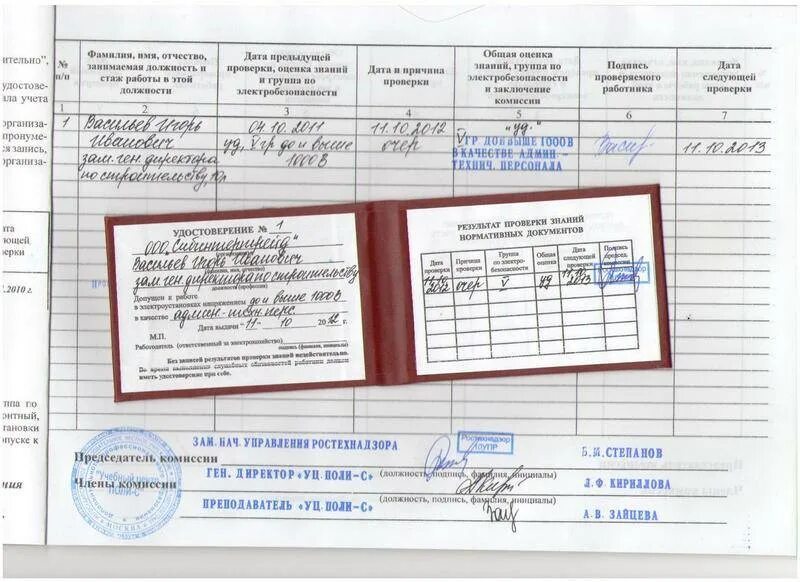 ительно",
удостове-
ала учета
организа-
пронуме-
ся запись,
организа-
ата
ующей
верки
.2010 г.
уппа по
онтный,
тановки
опуске к
ния
№ п/п
Фамилия, имя, отчество,
занимаемая должность и
стаж работы в этой
должности
Дата предыдущей
проверки, оценка знаний
и группа по
электробезопасности
Дата и причина
проверки
Общая оценка
знаний, группа по
электробезопасности
и заключение
комиссии
Подпись
проверяемого
работника
Дата
следующей
проверки
1 2 3 4 5 6 7
1 Васильев Игорь
Иванович
зам. ген. директора
по строительству,
04.10.2011
уд, V гр до и выше
1000В
11.10.2012
очер
"уд."
V ГР ДО И ВЫШЕ 1000 В
В КАЧЕСТВЕ АДМИН. –
ТЕХНИЧ. ПЕРСОНАЛА
11.10.2013
УДОСТОВЕРЕНИЕ № 1
Васильев Игорь Иванович
(фамилия, имя, отчество)
зам. ген. директора по строительству
должность (профессия)
Допущен к работе
в электроустановках напряжением до и выше 1000В
в качестве админ-техн. перс.
Дата выдачи "11" 10 2012 г.
М.П.
Работодатель (ответственный за электрохозяйство)
подпись (фамилия, инициалы)
Без записей результатов проверки знаний недействительно.
Во время выполнения служебных обязанностей работник должен
иметь удостоверение при себе.
РЕЗУЛЬТАТ ПРОВЕРКИ ЗНАНИЙ
НОРМАТИВНЫХ ДОКУМЕНТОВ
Дата
проверки
Причина
проверки
Группа
по электро-
безопасности
Общая
оценка
Дата
следующей
проверки
Подпись
председ.
комиссии
11.10
2012 очер V уд 11.10
2013
ЗАМ. НАЧ. УПРАВЛЕНИЯ РОСТЕХНАДЗОРА
Ростехнадзор
Председатель комиссии
Б.М. СТЕПАНОВ
ГЕН. ДИРЕКТОР «УЦ ПОЛИ-С» (должность, подпись, фамилия, инициалы)
Члены комиссии
Л.Ф. КИРИЛЛОВА
(должность, подпись, фамилия, инициалы)
ПРЕПОДАВАТЕЛЬ «УЦ ПОЛИ-С»
А.В. ЗАЙЦЕВА
"Учебный центр
ПОЛИ-С"
МОСКВА